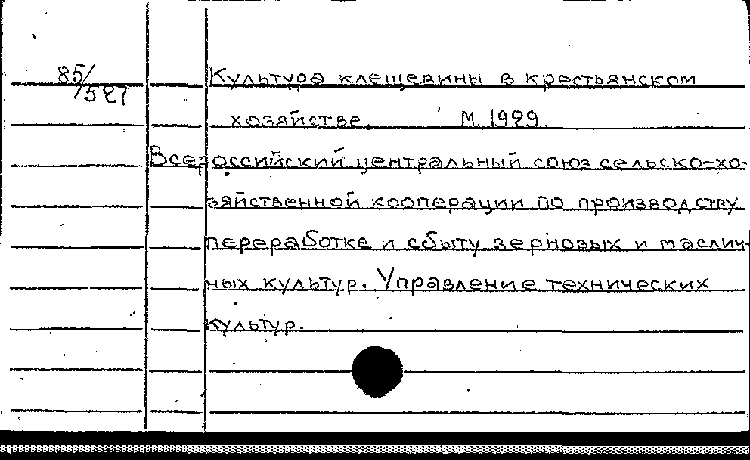 85/527
Культура клещевины в крестьянском
хозяйстве. М. 1929.
Всероссийский центральный союз сельско-хо-
зяйственной кооперации по производству
переработке и сбыту зерновых и маслич-
ных культур. Управление технических
культур.